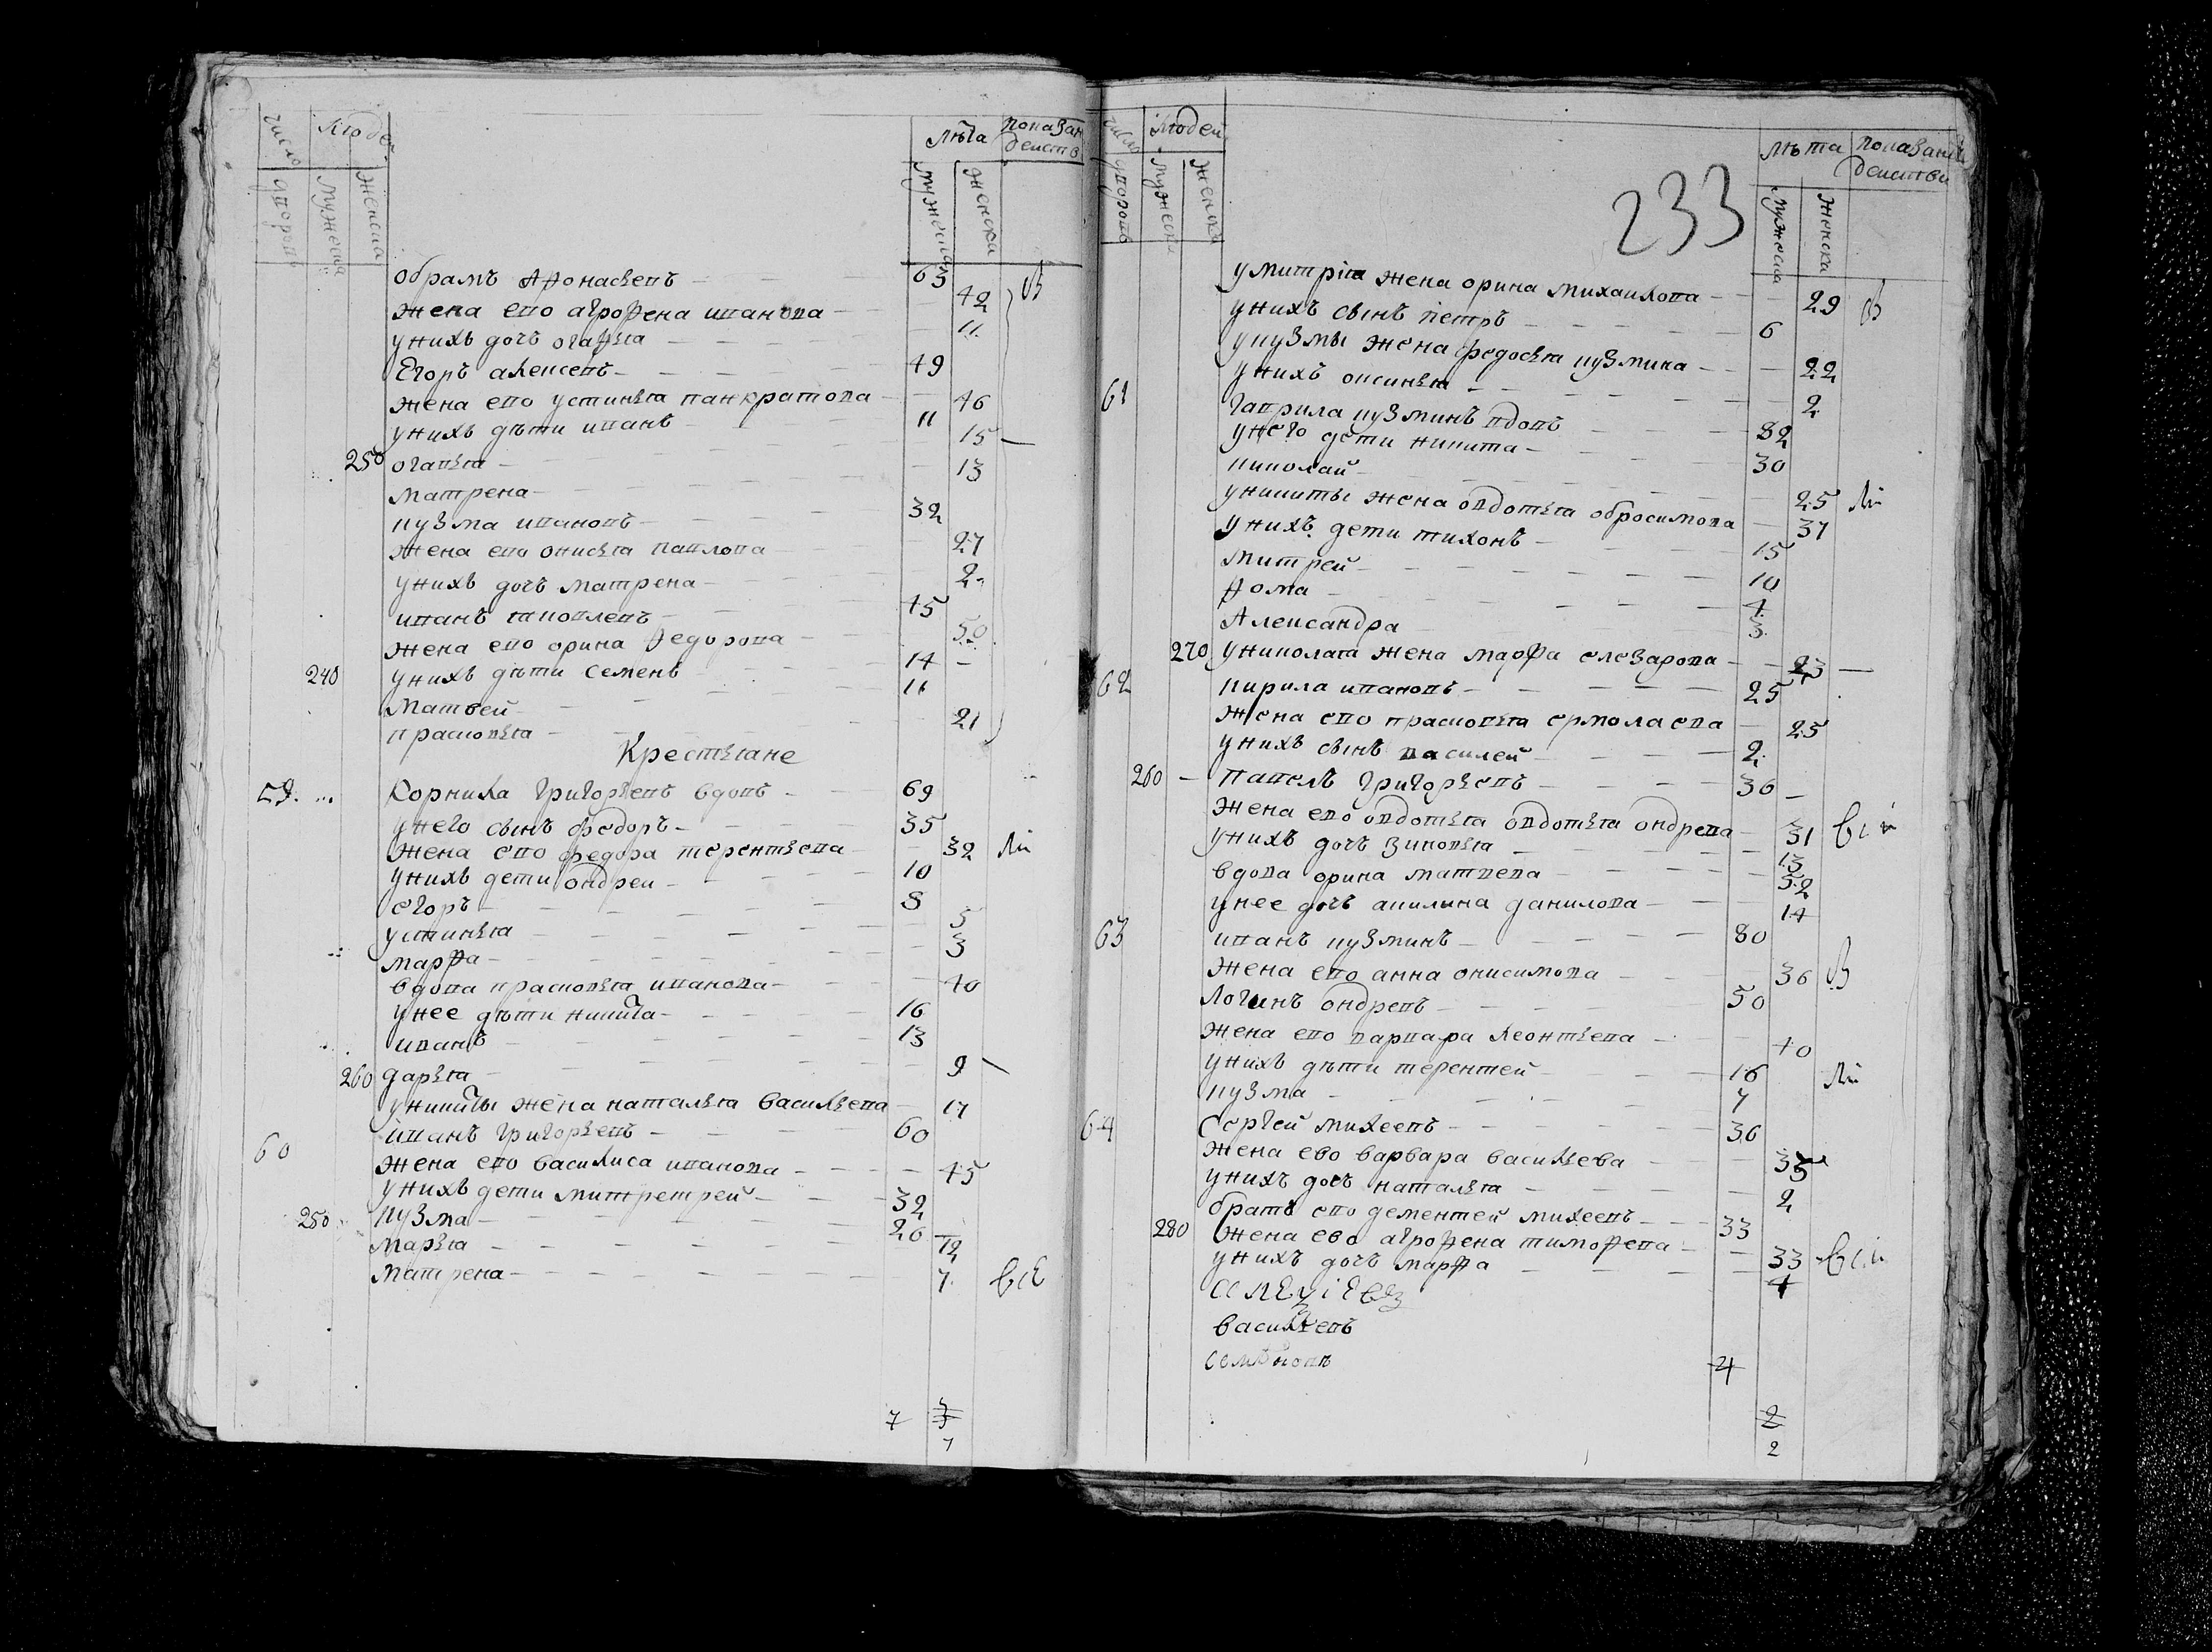 число дворовъ Людей мужеска женска Лѣта мужеска женска показан действ
обрамъ афонасьевъ 63
жена ево агрофена иванова 42 В
унихъ дочь огафья 11
Егоръ алексевъ 49
жена ево устинья панкратова 46
унихъ дѣти иванъ 11 15
250 огафья 13
матрена
кузма ивановъ 32
жена ево онисья павлова 27
унихъ дочь матрена 2
иванъ яковлевъ 45
жена ево орина федорова 50
240 унихъ дѣти семенъ 14
матвей 11
прасковья 21
Крестьяне
59 Корнила григорьевъ вдовъ 69
унего сынъ федоръ 35
жена ево федора терентьева 32
унихъ дети ондреи 10
егоръ 8
устинья 5
марфа 3
вдова прасковья иванова 40
унее дѣти никита 16
иванъ 13
260 дарья 9
уникиты жена наталья васильева 17
60 иванъ григорьевъ 60
жена ево василиса иванова 45
унихъ дети митретрей 32
250 кузма 26
марья 12
матрена 7
7 7
число дворовъ Людей мужеска женска Лѣта мужеска женска показани действи
233
умитрія жена орина михаилова 29 В
унихъ сынъ петръ 6
укузмы жена федосья кузмина 22
унихъ оксинья 2
61 гаврила кузминъ вдовъ 82
унего дети никита 30
николай
уникиты жена овдотья обросимова 25
унихъ дети тихонъ 15 37
митрей 10
фома 4
Александра 3
270 униколая жена марфа елезарова 23
62 кирила ивановъ 25
жена ево прасковья ермолаева 25
унихъ сынъ василей 2
260 павелъ григорьевъ 36
жена ево овдотья овдотья ондрева 31
унихъ дочь зиновья 13
вдова орина матвева 52
унее дочь акилина данилова 14
63 иванъ кузминъ 80
жена ево анна онисимова 36 В
логинъ ондревъ 50
жена ево варвара леонтьева 40
унихъ дѣти терентей 16
кузма 7
64 Сергей михеевъ 36
жена ево варвара васильева 35
унихъ дочь наталья 2
братъ ево дементей михеевъ 33
280 жена ево агрофена тимофева 33
унихъ дочь марфа 4
васильевъ
семѣновъ 4
2
2